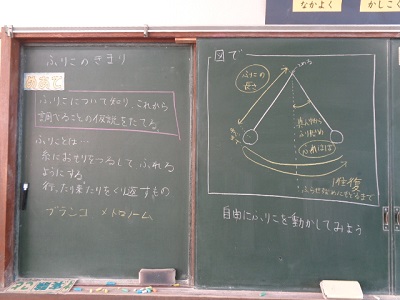 なかよく
かしこく
ふりこのきまり
めあて
ふりこについて知り、これから
調べることの仮説をたてる。
ふりことは…
糸におもりをつるして、ふれる
ようにする。
行ったり来たりをくり返すもの
ブランコ メトロノーム
図で
ふりこの
長さ
ふれはば
1往復
自由にふりこを動かしてみよう